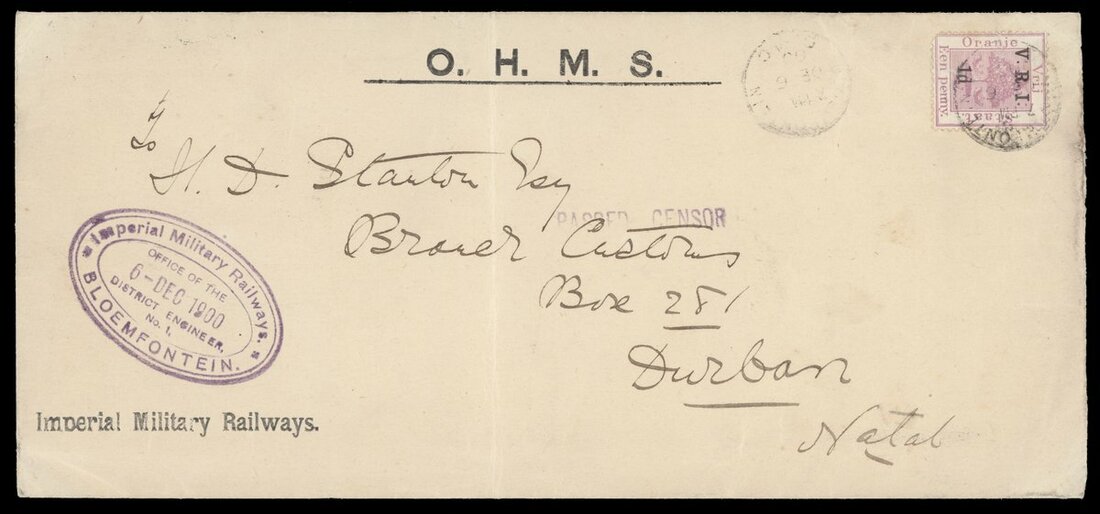 O. H. M. S.
Oranje
Vrij
Staat.
Een penny.
V. R. I.
1d
To
H. D. Stanton Esq
PASSED CENSOR
Customs
Box 281
Durban
Natal
Imperial Military Railways.
OFFICE OF THE
6-DEC 1900
DISTRICT ENGINEER,
No. 1,
BLOEMFONTEIN.
Imperial Military Railways.